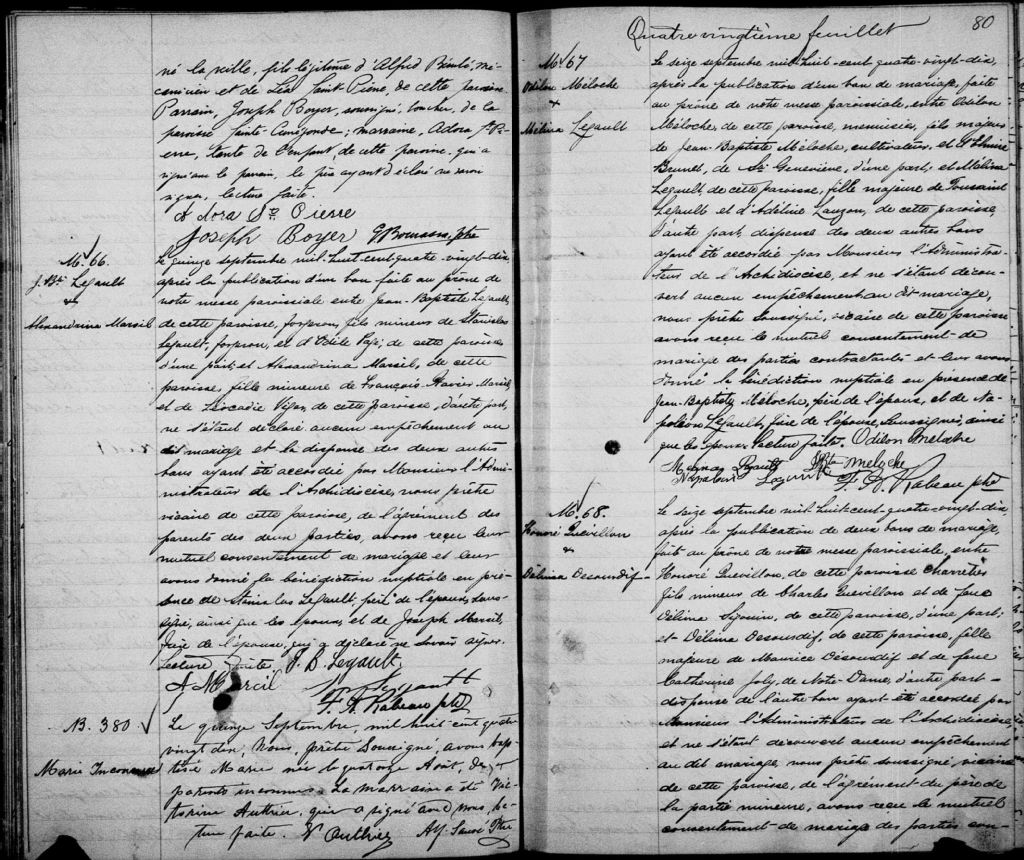 né la veille, fils légitime d'Alfred
et de Léa Saint-Pierre, de cette paroisse.
Parrain, Joseph Boyer, soussigné, boucher, de la
paroisse Sainte-Cunégonde; marraine, Adora St Pi-
erre, tante de l'enfant, de cette paroisse, qui a
signé avec le parrain, le père ayant déclaré ne savoir
signer, lecture faite.
Adora St. Pierre
Joseph Boyer ptre
M. 66.
J. Bte Legault
&
Alexandrina Marsil
Le quinze septembre mil huit cent quatre-vingt-dix,
après la publication d'un ban faite au prône de
notre messe paroissiale entre Jean-Baptiste Legault,
de cette paroisse, forgeron, fils mineur de Stanislas
Legault, forgeron, et d'Odile Pagé, de cette paroisse,
d'une part, et Alexandrina Marsil, de cette
paroisse, fille mineure de François Xavier Marsil,
et de Léocadie de cette paroisse, d'autre part,
ne s'étant déclaré aucun empêchement au
dit mariage et la dispense des deux autres
bans ayant été accordée par Monsieur l'Admi-
nistrateur de l'Archidiocèse, nous prêtre
vicaire de cette paroisse, de l'agrément des
parents des deux parties, avons reçu leur
mutuel consentement de mariage et leur
avons donné la bénédiction nuptiale en pré-
sence de Stanislas Legault, père de l'époux, sous-
signé, ainsi que les époux, et de Joseph Marsil,
de l'épouse, qui a déclaré ne savoir signer.
Lecture faite. J. B. Legault
A Marcil S Legault
F. A. Rabeau ptre
B. 380
Marie Inconnue
Le quinze Septembre, mil huit cent quatre
vingt dix, Nous, prêtre soussigné, avons bap-
tisé Marie née le quatorze Août, de
parents inconnus. La marraine a été Vic-
torine Authier, qui a signé avec nous. Lec-
ture faite. V Authier Alf. Sauvé Ptre
Quatre vingtième feuillet
80
M. 67
Odilon Méloche
&
Mélina Legault
Le seize septembre mil huit-cent quatre-vingt-dix,
après la publication d'un ban de mariage, faite
au prône de notre messe paroissiale, entre Odilon
Méloche, de cette paroisse, menuisier, fils majeur
de Jean-Baptiste Méloche, cultivateur, et
Brunet, de Ste Geneviève, d'une part, et Mélina
Legault, de cette paroisse, fille majeure de Toussaint
Legault et d'Adéline Lauzon, de cette paroisse,
d'autre part, dispense des deux autres bans
ayant été accordée par Monsieur l'Administra-
teur de l'Archidiocèse, et ne s'étant décou-
vert aucun empêchement au dit mariage,
nous prêtre soussigné, vicaire de cette paroisse
avons reçu le mutuel consentement de
mariage des parties contractantes et leur avons
donné la bénédiction nuptiale en présence de
Jean-Baptiste Méloche, père de l'époux, et de Na-
poléon Legault, frère de l'épouse, soussignés, ainsi
que les époux. Lecture faite. Odilon Meloche
Legault J Bte Meloche
Napoleon Legault F. A. Rabeau ptre
M. 68.
Honoré Quévillon
&
Délima Desourdif
Le seize septembre mil huit-cent-quatre-vingt-dix,
après la publication de deux bans de mariage,
fait au prône de notre messe paroissiale, entre
Honoré Quévillon, de cette paroisse charretier
fils mineur de Charles Quévillon et de feue
Délima de cette paroisse, d'une part;
et Délima Desourdif, de cette paroisse, fille
majeure de Maurice Désourdif et de feue
Catherine Joly, de Notre-Dame, d'autre part-
dispense de l'autre ban ayant été accordée par
Monsieur l'Administrateur de l'Archidiocèse,
et ne s'étant découvert aucun empêchement
au dit mariage, nous prêtre soussigné vicaire
de cette paroisse, de l'agrément du père de
la partie mineure, avons reçu le mutuel
consentement de mariage des parties con-